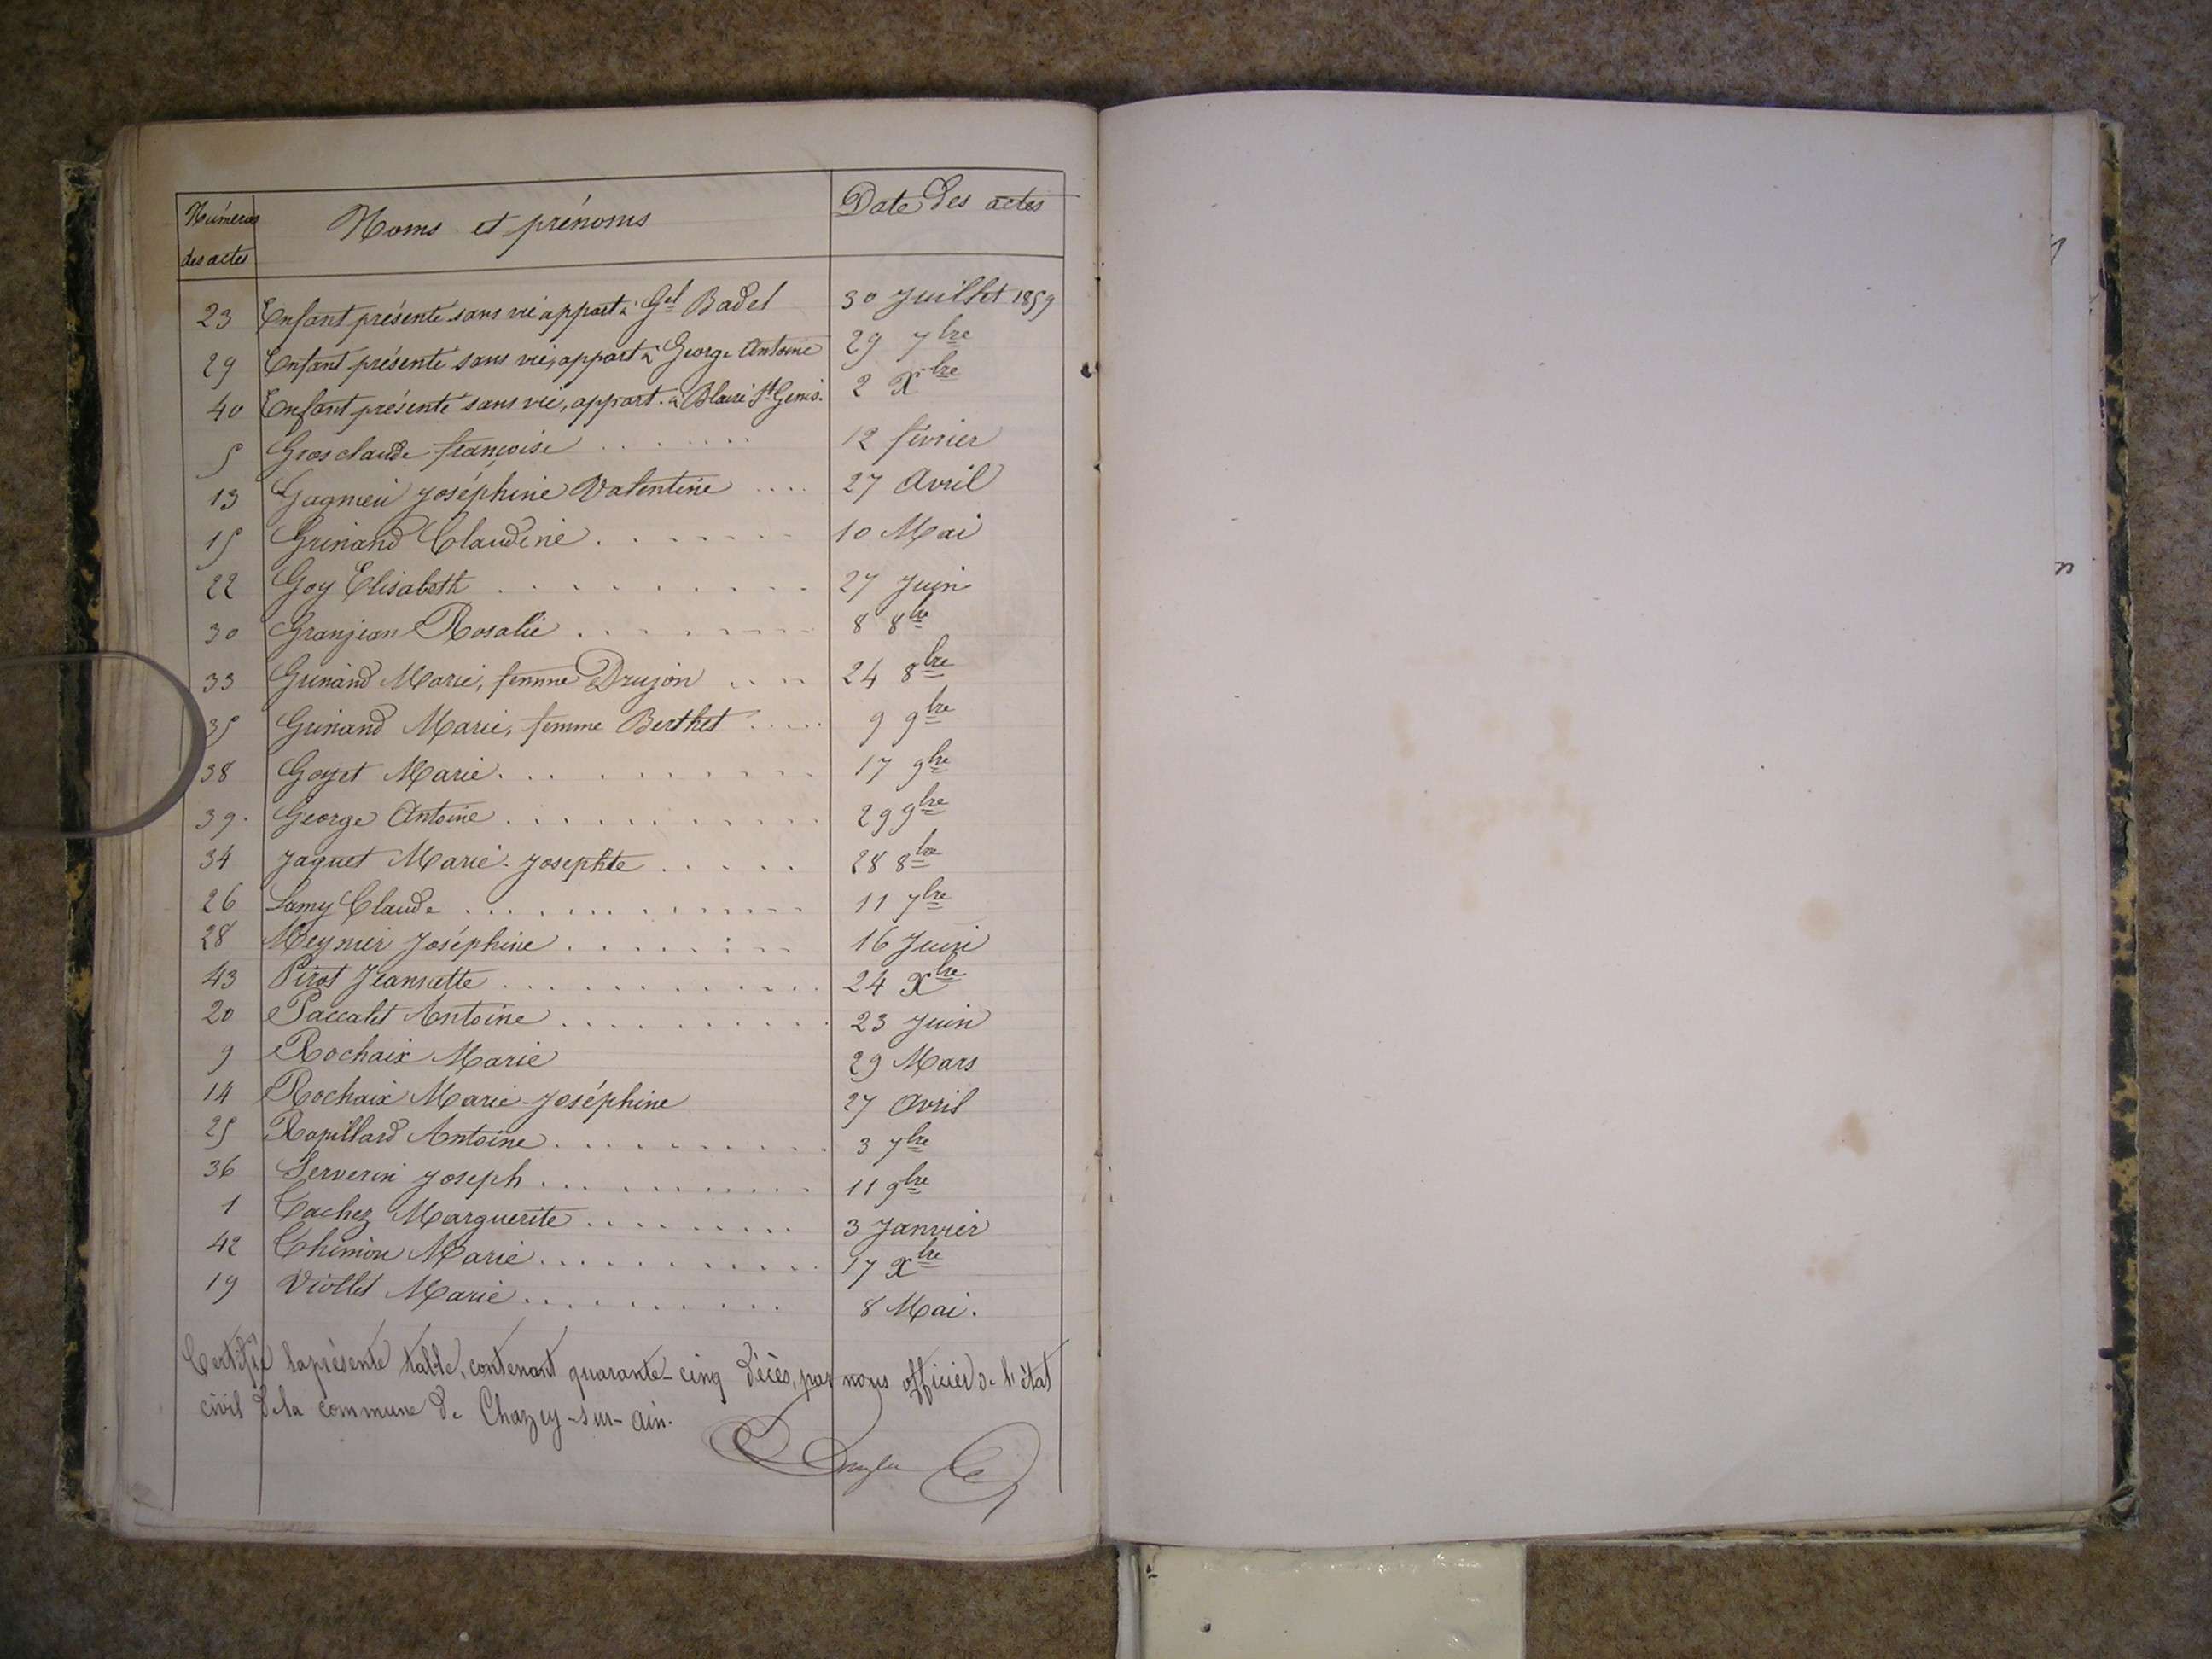 Numéros des actes Noms et prénoms Date des actes
23 Enfant présenté sans vie appart. à Gel Badel 30 Juillet 1859
29 Enfant présenté sans vie, appart. à George Antoine 29 7bre
40 Enfant présenté sans vie, appart. à Blaise St Genis. 2 Xbre
5 Grosclaude françoise 12 février
13 Gagnieu Joséphine Valentine 27 Avril
15 Grinand Claudine 10 Mai
22 Goy Elisabeth 27 Juin
30 Granjean Rosalie 8 8bre
33 Grinand Marie, femme Drujon 24 8bre
35 Grinand Marie, femme Berthet 9 9bre
38 Goyet Marie 17 9bre
39. George Antoine 29 9bre
34 Jaquet Marie-Josephte 28 8bre
26 Lamy Claude 11 7bre
28 Meynier Joséphine 16 Juin
43 Pirot Jeannette 24 Xbre
20 Paccalet Antoine 23 Juin
9 Rochaix Marie 29 Mars
14 Rochaix Marie-Joséphine 27 Avril
25 Rapillard Antoine 3 7bre
36 Serverin Joseph 11 9bre
1 Tachez Marguerite 3 Janvier
42 Thimon Marie 17 Xbre
19 Viollet Marie 8 Mai.
Certifié la présente table, contenant quarante-cinq décès, par nous officier de l'état
civil de la commune de Chazey-sur-ain.